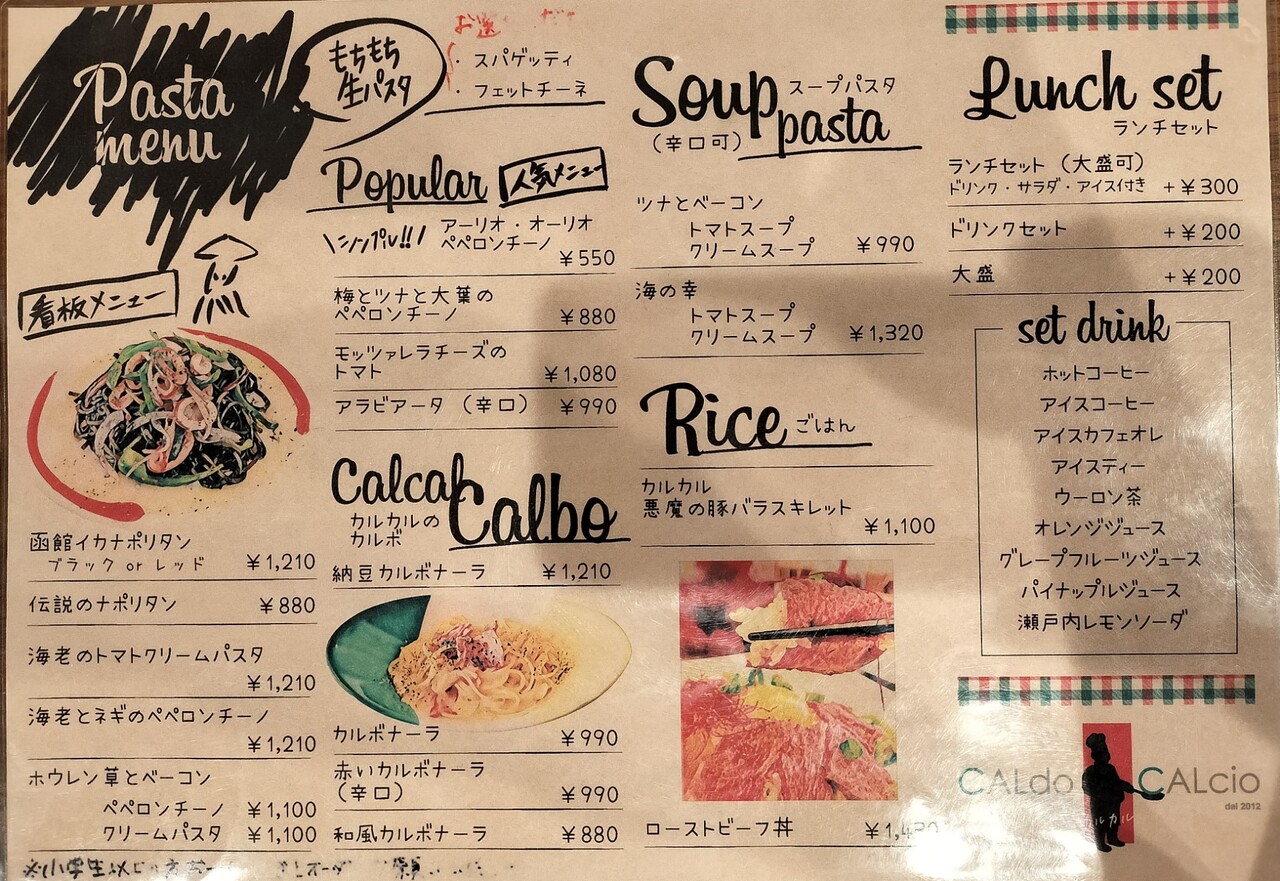 Pasta
menu
もちもち
生パスタ
・スパゲッティ
・フェットチーネ
看板メニュー
函館イカナポリタン
ブラック or レッド ¥1,210
伝説のナポリタン ¥880
海老のトマトクリームパスタ
¥1,210
海老とネギのペペロンチーノ
¥1,210
ホウレン草とベーコン
ペペロンチーノ ¥1,100
クリームパスタ ¥1,100
Popular 人気メニュー
\シンプル!!/ アーリオ・オーリオ
ペペロンチーノ
¥550
梅とツナと大葉の
ペペロンチーノ ¥880
モッツァレラチーズの
トマト ¥1,080
アラビアータ (辛口) ¥990
Calcal Calbo
カルカルの
カルボ
納豆カルボナーラ ¥1,210
カルボナーラ ¥990
赤いカルボナーラ
(辛口) ¥990
和風カルボナーラ ¥880
Soup pasta
スープパスタ
(辛口可)
ツナとベーコン
トマトスープ
クリームスープ ¥990
海の幸
トマトスープ
クリームスープ ¥1,320
Rice ごはん
カルカル
悪魔の豚バラスキレット
¥1,100
ローストビーフ丼
Lunch set
ランチセット
ランチセット (大盛可)
ドリンク・サラダ・アイス付き +¥300
ドリンクセット +¥200
大盛 +¥200
set drink
ホットコーヒー
アイスコーヒー
アイスカフェオレ
アイスティー
ウーロン茶
オレンジジュース
グレープフルーツジュース
パイナップルジュース
瀬戸内レモンソーダ
CALdo CALcio
dal 2012